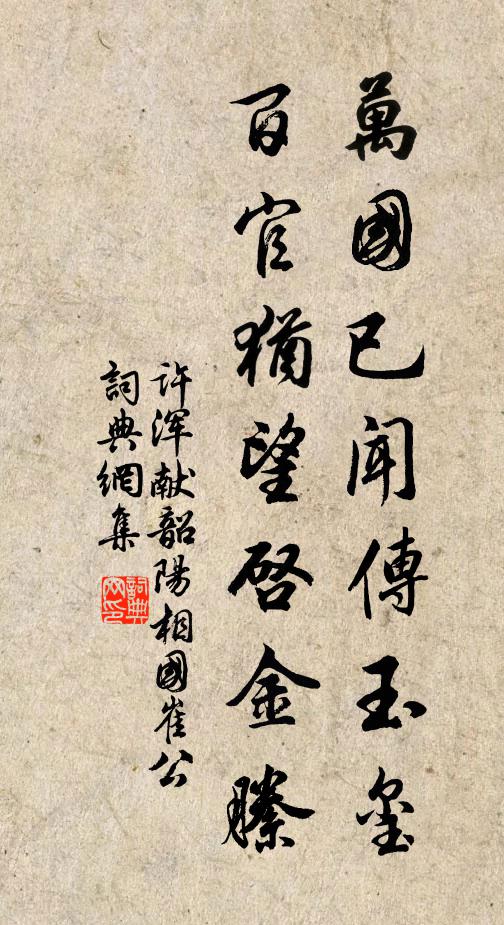 萬國已聞傳玉璽
百官猶望啓金縢
许渾献韶陽相國崔公
詞典網集
詞典網印